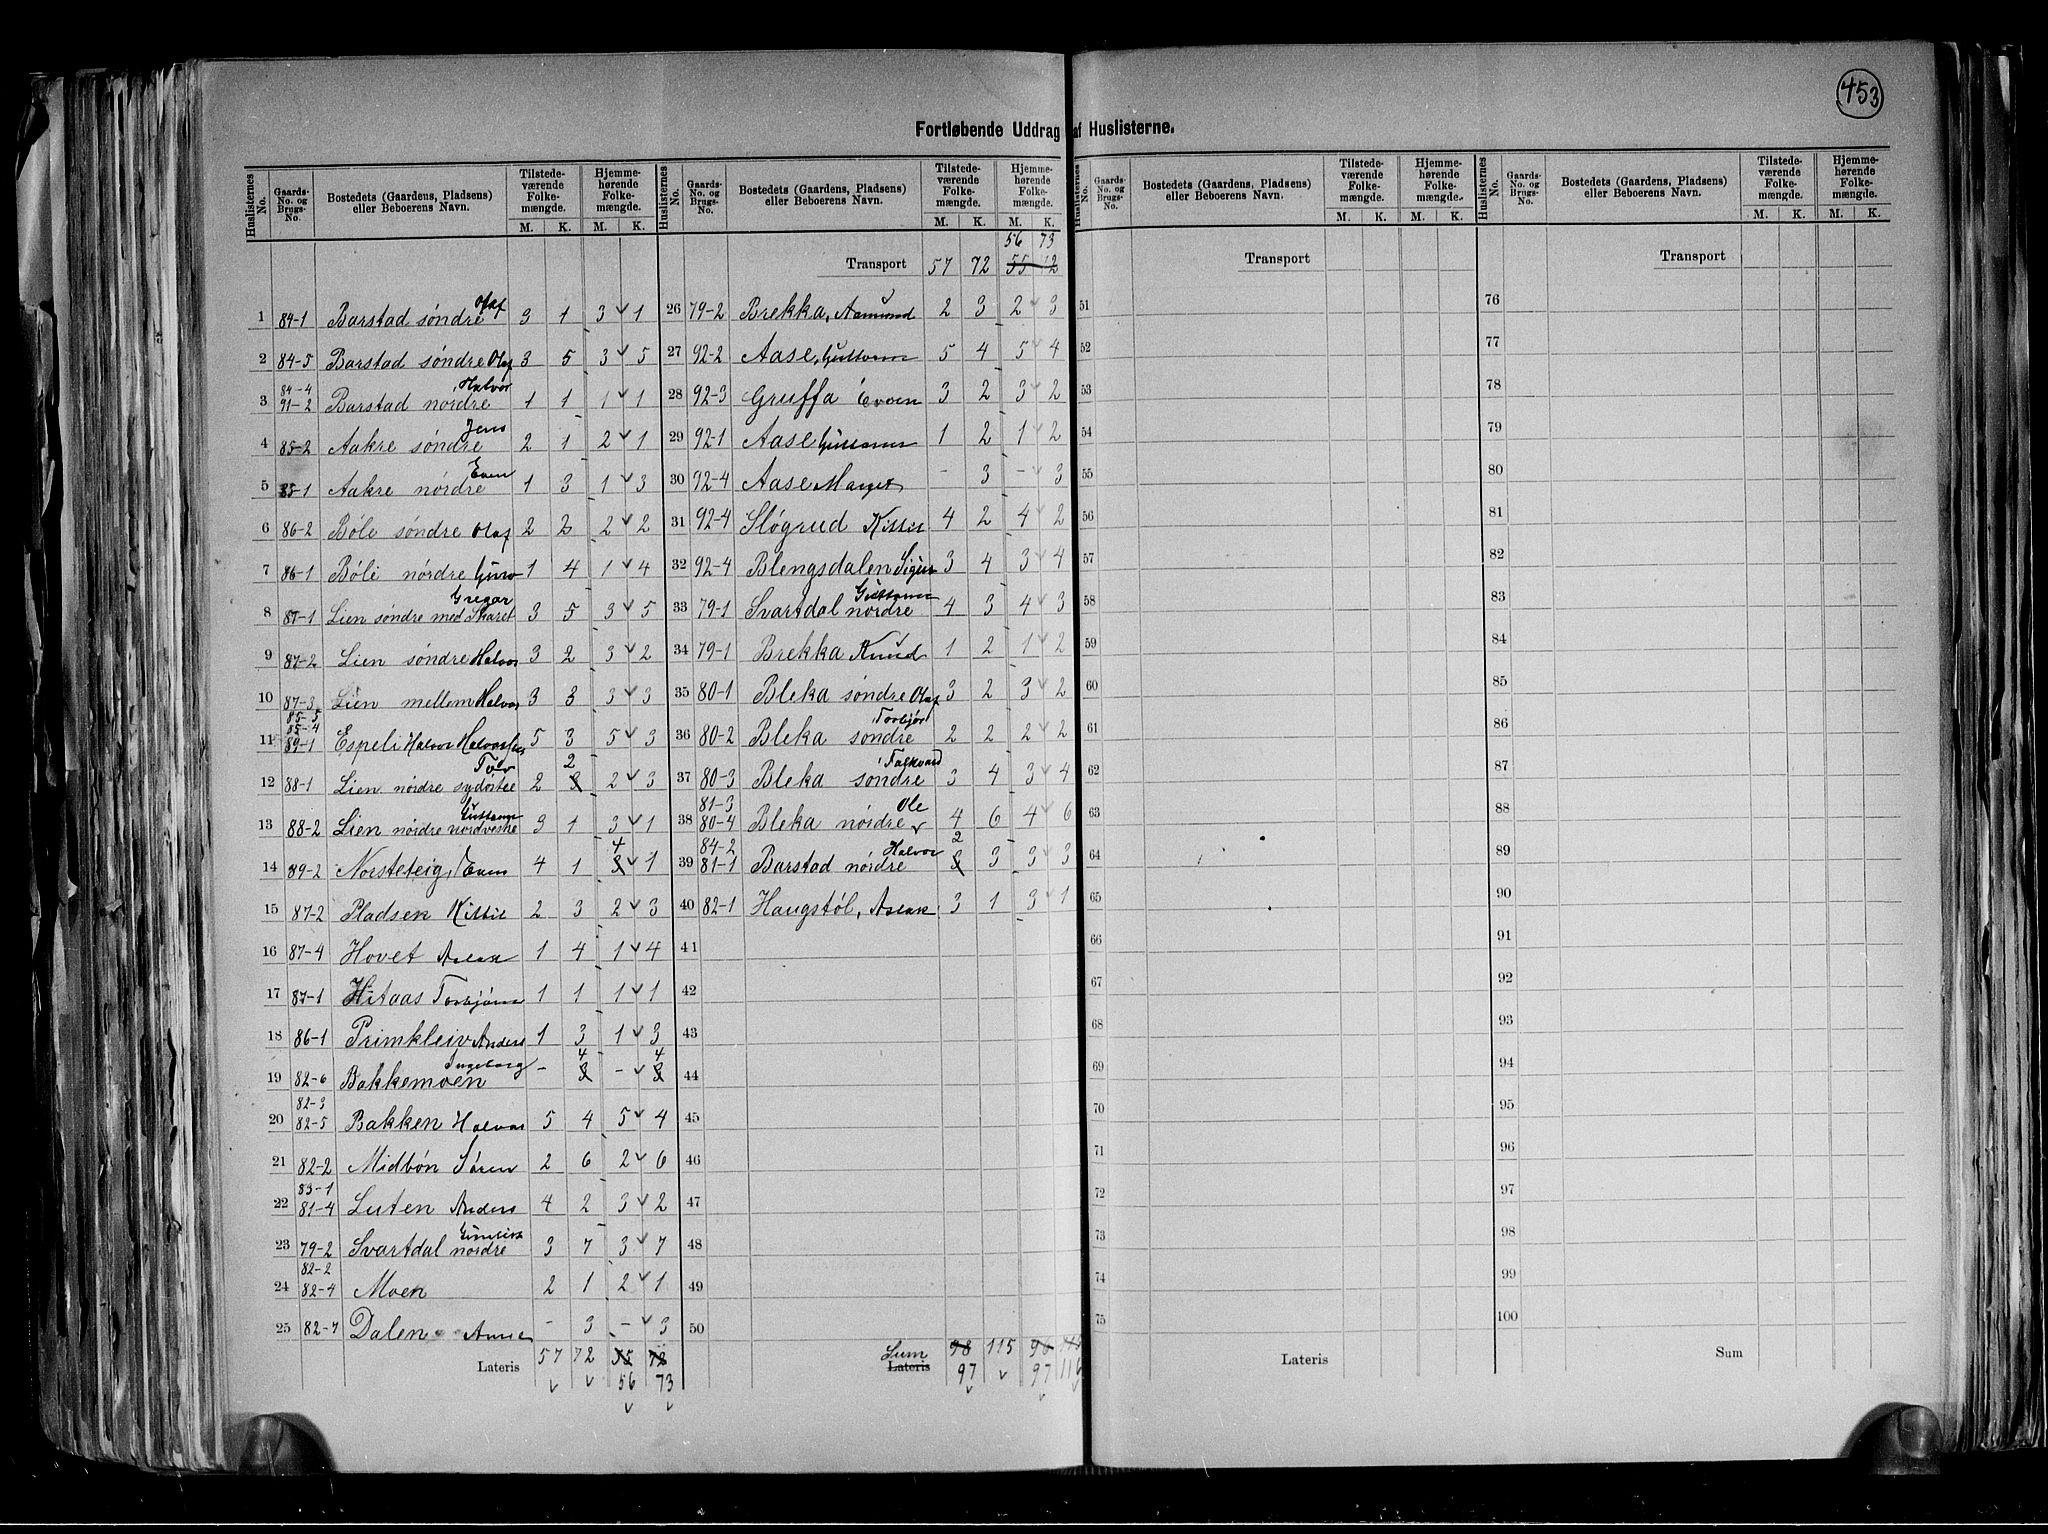 453
Fortløbende Uddrag af Huslisterne.
Huslisternes No. Gaards-No. og Brugs-No. Bostedets (Gaardens, Pladsens) eller Beboerens Navn. Tilstede-værende Folke-mængde. M. K. Hjemme-hørende Folke-mængde. M. K.
1 84-1 Barstad søndre Olaf 3 1 3 1
2 84-5 Barstad søndre Olaf 3 5 3 5
3 84-4 91-2 Barstad nordre, Halvor 1 1 1 1
4 85-2 Aakre søndre Jens 2 1 2 1
5 85-1 Aakre nordre Even 1 3 1 3
6 86-2 Bóli søndre Olaf 2 2 2 2
7 86-1 Bóli nórdre Guro 1 4 1 4
8 87-1 Lien søndre med Skaret Gregar 3 5 3 5
9 87-2 Lien søndre Halvor 3 2 3 2
10 87-3 Lien mellem Halvor 3 3 3 3
11 85-5 85-4 89-1 Espeli Halvor 5 3 5 3
12 88-1 Lien nórdre sydóstre 2 3 2 2 3
13 88-2 Lien nórdre nordvestre 3 1 3 1
14 89-2 Norsteteig, Even 4 1 3 4 1
15 87-2 Pladsen Kittil 2 3 2 3
16 87-4 Hovet Aslak 1 4 1 4
17 87-1 Hitaas Torbjórn 1 1 1 1
18 86-1 Primkleiv Anders 1 3 1 3
19 82-6 Bakkemoen Ingeborg - 3 4 - 3 4
20 82-3 82-5 Bakken Halvor 5 4 5 4
21 82-2 Midbón Sóren 2 6 2 6
22 83-1 81-4 Luten Anders 4 2 3 2
23 79-2 Svartdal nórdre 3 7 3 7
24 82-2 82-4 Moen 2 1 2 1
25 82-7 Dalen Anne - 3 - 3
Lateris 57 72 55 72
56 73
Huslisternes No. Gaards-No. og Brugs-No. Bostedets (Gaardens, Pladsens) eller Beboerens Navn. Tilstede-værende Folke-mængde. M. K. Hjemme-hørende Folke-mængde. M. K.
56 73
Transport 57 72 55 72
26 79-2 Brekka, Aamund 2 3 2 3
27 92-2 Aase, 5 4 5 4
28 92-3 Gruffa Even 3 2 3 2
29 92-1 Aase 1 2 1 2
30 92-4 Aase Marget - 3 - 3
31 92-4 Slógrud Kittil 4 2 4 2
32 92-4 Blengsdalen 3 4 3 4
33 79-1 Svartdal nordre 4 3 4 3
34 79-1 Brekka Knud 1 2 1 2
35 80-1 Bleka søndre Olaf 3 2 3 2
36 80-2 Bleka søndre, Torbjór 2 2 2 2
37 80-3 Bleka søndre, Folkvard 3 4 3 4
38 81-3 80-4 Bleka nórdre Ole 4 6 4 6
39 84-2 81-1 Barstad nórdre Halvor 3 2 3 3 3
40 82-1 Haugstól, Aslak 3 1 3 1
41
42
43
44
45
46
47
48
49
50
Sum Lateris 98 115 96 115
97 97 116
Huslisternes No. Gaards-No. og Brugs-No. Bostedets (Gaardens, Pladsens) eller Beboerens Navn. Tilstede-værende Folke-mængde. M. K. Hjemme-hørende Folke-mængde. M. K.
Transport
51
52
53
54
55
56
57
58
59
60
61
62
63
64
65
66
67
68
69
70
71
72
73
74
75
Lateris
Huslisternes No. Gaards-No. og Brugs-No. Bostedets (Gaardens, Pladsens) eller Beboerens Navn. Tilstede-værende Folke-mængde. M. K. Hjemme-hørende Folke-mængde. M. K.
Transport
76
77
78
79
80
81
82
83
84
85
86
87
88
89
90
91
92
93
94
95
96
97
98
99
100
Sum